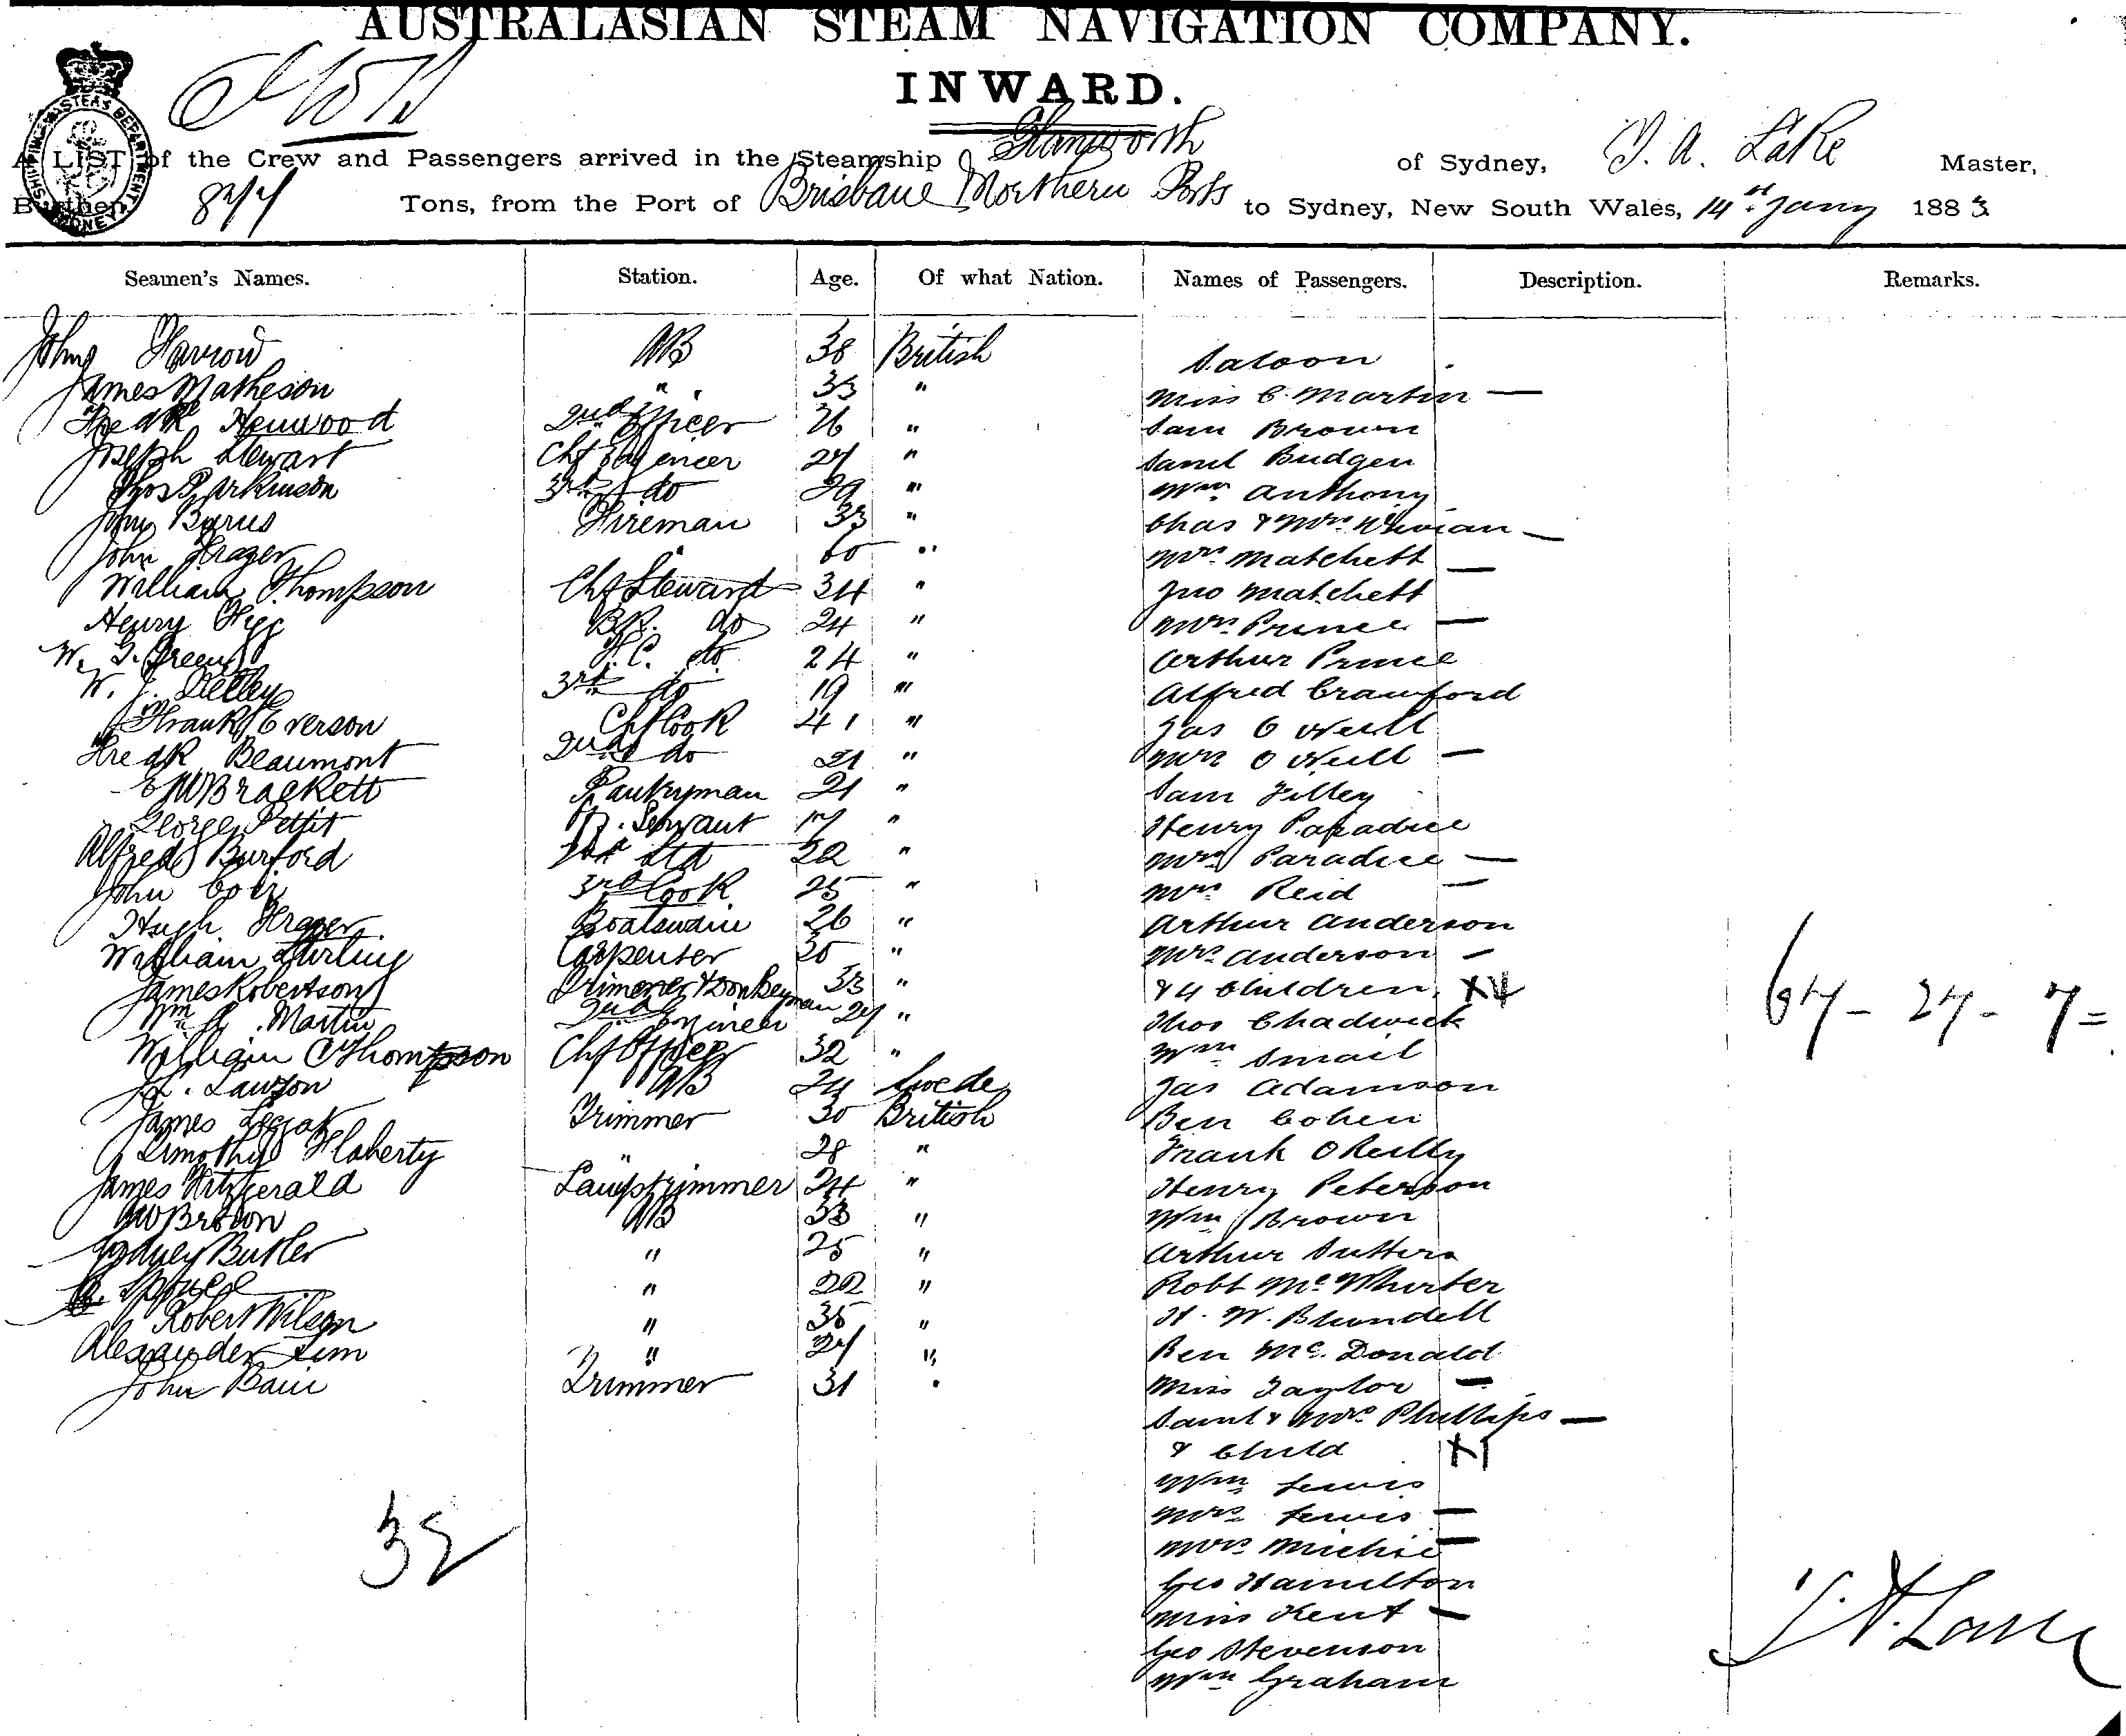 AUSTRALASIAN STEAM NAVIGATION COMPANY.
INWARD.
A LIST of the Crew and Passengers arrived in the Steamship Glanworth of Sydney, T. A. Lake Master,
Burthen 877 Tons, from the Port of Brisbane & Northern Ports to Sydney, New South Wales, 14th Jany 1883
SHIPPING MASTER'S DEPARTMENT SYDNEY
Seamen's Names. Station. Age. Of what Nation. Names of Passengers. Description. Remarks.
John Farrow AB 38 British Saloon
James Matheson " 33 " Miss C. Martin —
Fredk Henwood 2nd Officer 26 " Sam Brown
Joseph Stewart Chf Engineer 27 " Saml Budgen
Thos Parkinson 3rd do 29 " Wm Anthony
John Byrus Fireman 33 " Chas & Mrs Vivian —
John Frazer " 60 " Mrs Matchett —
William Thompson Chf Steward 34 " Jno Matchett
Henry Figg B.R. do 24 " Mrs Prince —
W. G. Green F.C. do 24 " Arthur Prince
W. J. Kelley 3rd do 19 " Alfred Crawford
Frank Everson Chf Cook 41 " Jas O Neill
Fredk Beaumont 2nd do 21 " Mrs O Neill —
E W Brackett Pantryman 21 " Sam Filley
George Pettit Servant 17 " Henry Paradice
Alfred Burford 2nd Std 22 " Mrs Paradice —
John 3rd Cook 25 " Mrs Reid —
Hugh Frazer Boatswain 26 " Arthur Anderson
William Stirling Carpenter 30 " Mrs Anderson —
James Robertson Trimmer & Donkeyman 33 " & 4 Children X4 67 - 27 - 7 =
Wm Martin 2nd Engineer 27 " Thos Chadwick
William C Thompson Chf Officer 32 " Wm Smail
Lawson AB 24 Swede Jas Adamson
James Leggat Trimmer 30 British Ben Cohen
Timothy Flaherty " 28 " Frank O Reilly
James Fitzgerald Lamptrimmer 24 " Henry Peterson
W Brown AB 33 " Wm Brown
Sydney Butler " 25 " Arthur Suttern
" 22 " Robt McWhirter
Robert Wilson " 35 " H. W. Blundell
Alexander Sim " 27 " Ben Mc. Donald
John Bain Trimmer 31 " Miss Taylor —
Saml & Mrs Phillips —
& Child X1
Wm Lewis
Mrs Lewis —
Mrs Michie —
Geo Hamilton
Miss Kent —
Geo Stevenson
Wm Graham
32